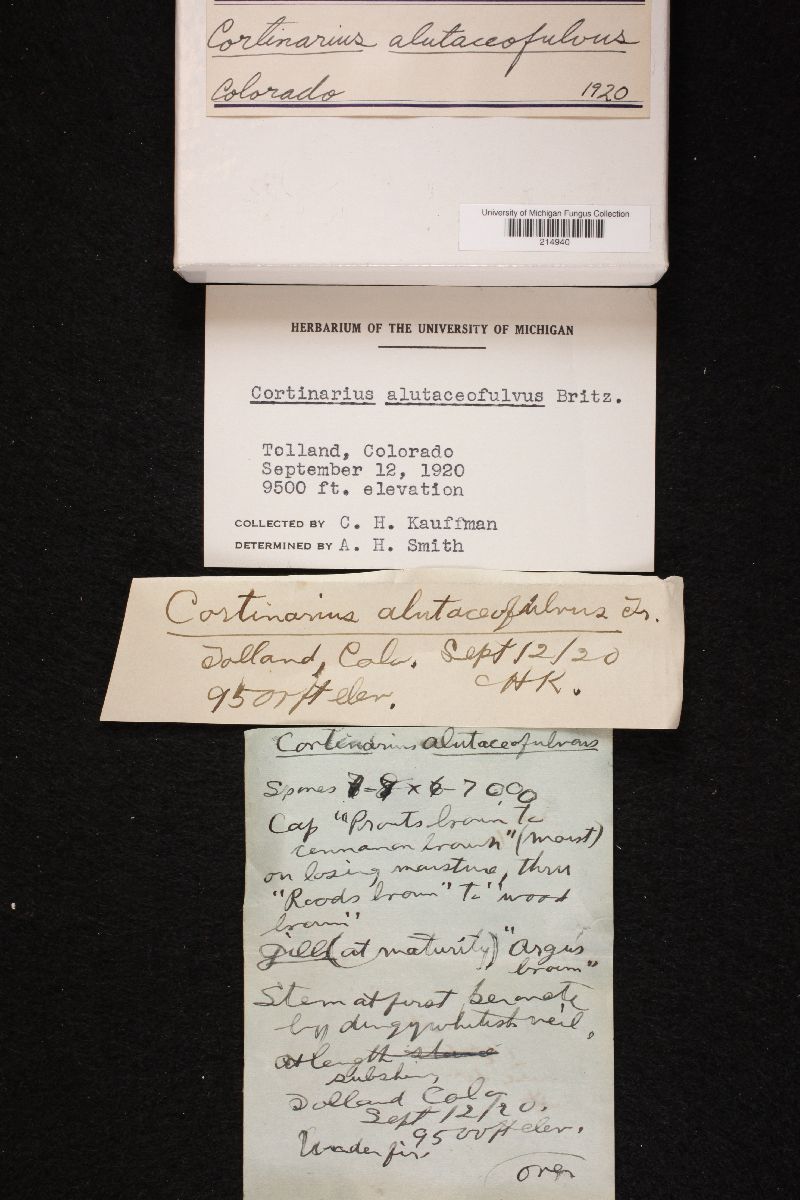 Cortinarius alutaceofulvus
Colorado 1920
University of Michigan Fungus Collection
214940
HERBARIUM OF THE UNIVERSITY OF MICHIGAN
Cortinarius alutaceofulvus Britz.
Tolland, Colorado
September 12, 1920
9500 ft. elevation
COLLECTED BY C. H. Kauffman
DETERMINED BY A. H. Smith
Cortinarius alutaceofulvus Fr.
Tolland, Colo. Sept 12/20
9500 ft elev. CHK.
Cortinarius alutaceofulvus
Spores 7-8 x 6-7
Cap "Prouts brown" to
cinnamon brown" (moist)
on losing moisture, thru
"Roods brown" to "wood
brown"
gills (at maturity) "Argus
brown"
Stem at first peronate
by dingy whitish veil,
at length
subshiny
Tolland Colo
Sept 12/20.
9500 ft elev.
Under fir.
over